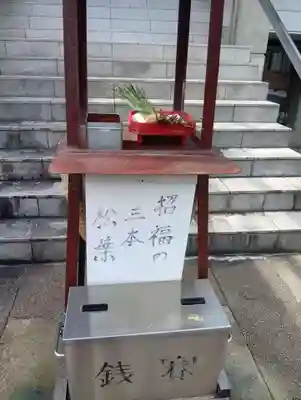 招福の
三本
松葉
賽銭